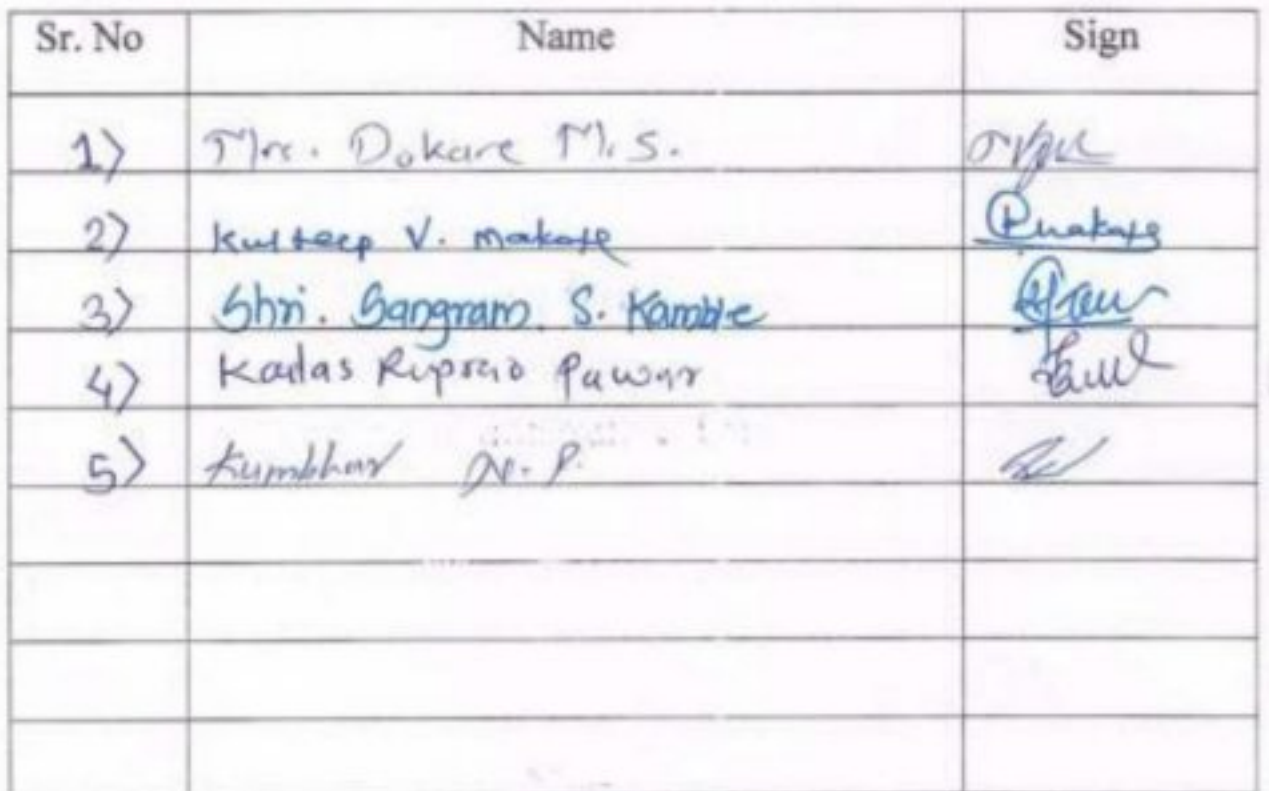 Sr. No Name Sign
1) Mrs. Dokare M. S.
2) Kuldeep V. Makate
3) Shri. Sangram S. Kamble
4) Kailas Ruprao Pawar
5) Kumbhar N. P.